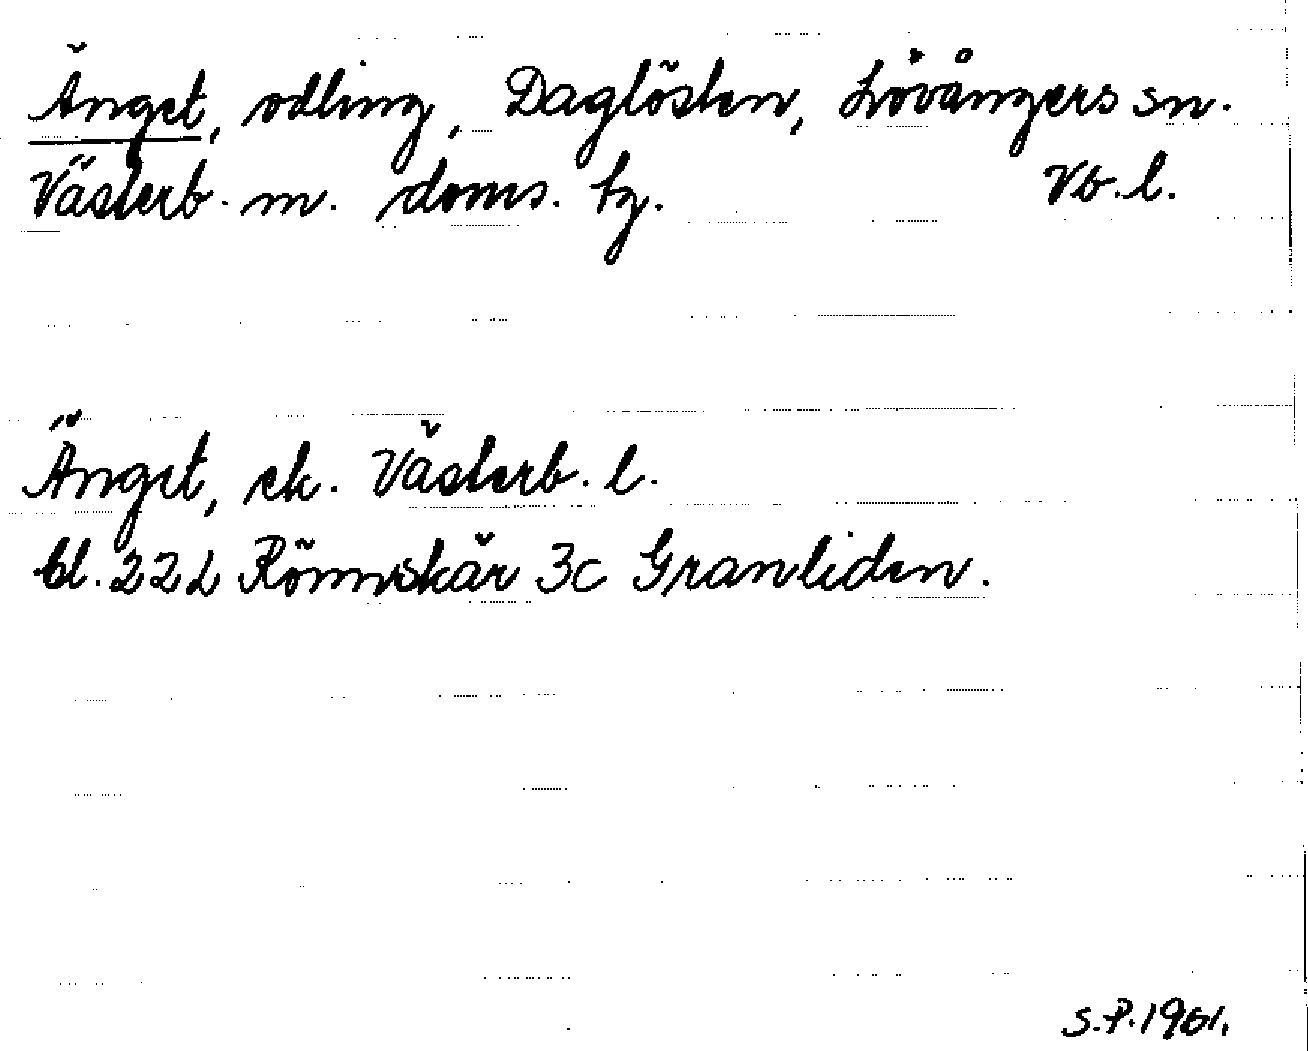 Änget, odling, Daglösten, Lövångers sn.
Västerb. m. doms. tg. Vb. l.
Änget, ek. Västerb. l.
bl. 22L Rönnskär 3c Granliden.
S.P. 1961.